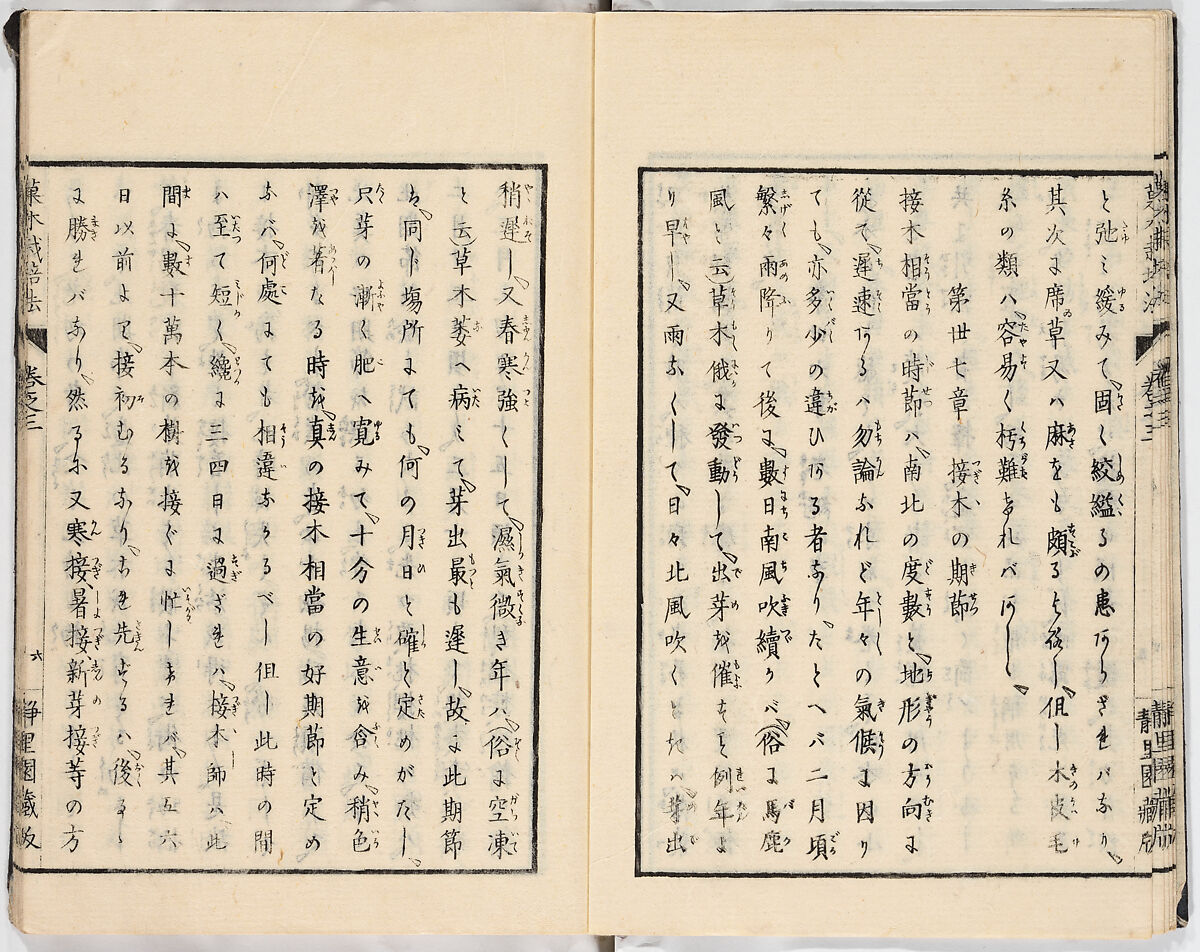 と弛ミ緩みて固く絞縊るの患アらざれバなり
其次に席草又ハ麻をも頗るよろし但し木皮毛
糸の類ハ容易く朽難ければアしし
第卅七章　接木の期節
接木相當の時節ハ南北の度數と地形の方向に
從て遲速アるハ勿論なれど年々の氣候に因り
ても亦多少の違ひアる者なりたとへバ二月頃
繁々雨降りて後に數日南風吹續けバ俗に馬鹿
風と云草木俄に發動して出芽を催すこと例年よ
り早し又雨なくして日々北風吹くときハ芽出
稍遲し又春寒強くして濕氣微き年ハ俗に空凍
と云草木萎へ病ミて芽出最も遲し故に此期節
ハ同し塲所にても何の月日と確と定めがたし
只芽の漸く肥へ寛みて十分の生意を含み稍色
澤を著なる時を真の接木相當の好期節と定め
なバ何處にても相違なかるべし但し此時の間
ハ至て短く纔に三四日に過ざれハ接木師ハ此
間に數十萬本の樹を接ぐに忙しければ其五六
日以前より接初むるなりこれ先ずるハ後るゝ
に勝ればなり然るに又寒接暑接新芽接等の方
菓木栽培法
卷之三
六
静里園藏版